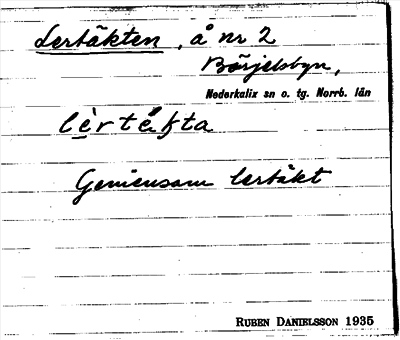 Lertäkten, å nr 2
Börjelsbyn,
Nederkalix sn o. tg. Norrb. län
lèrtåkta
Gemensam lertäkt
RUBEN DANIELSSON 1935